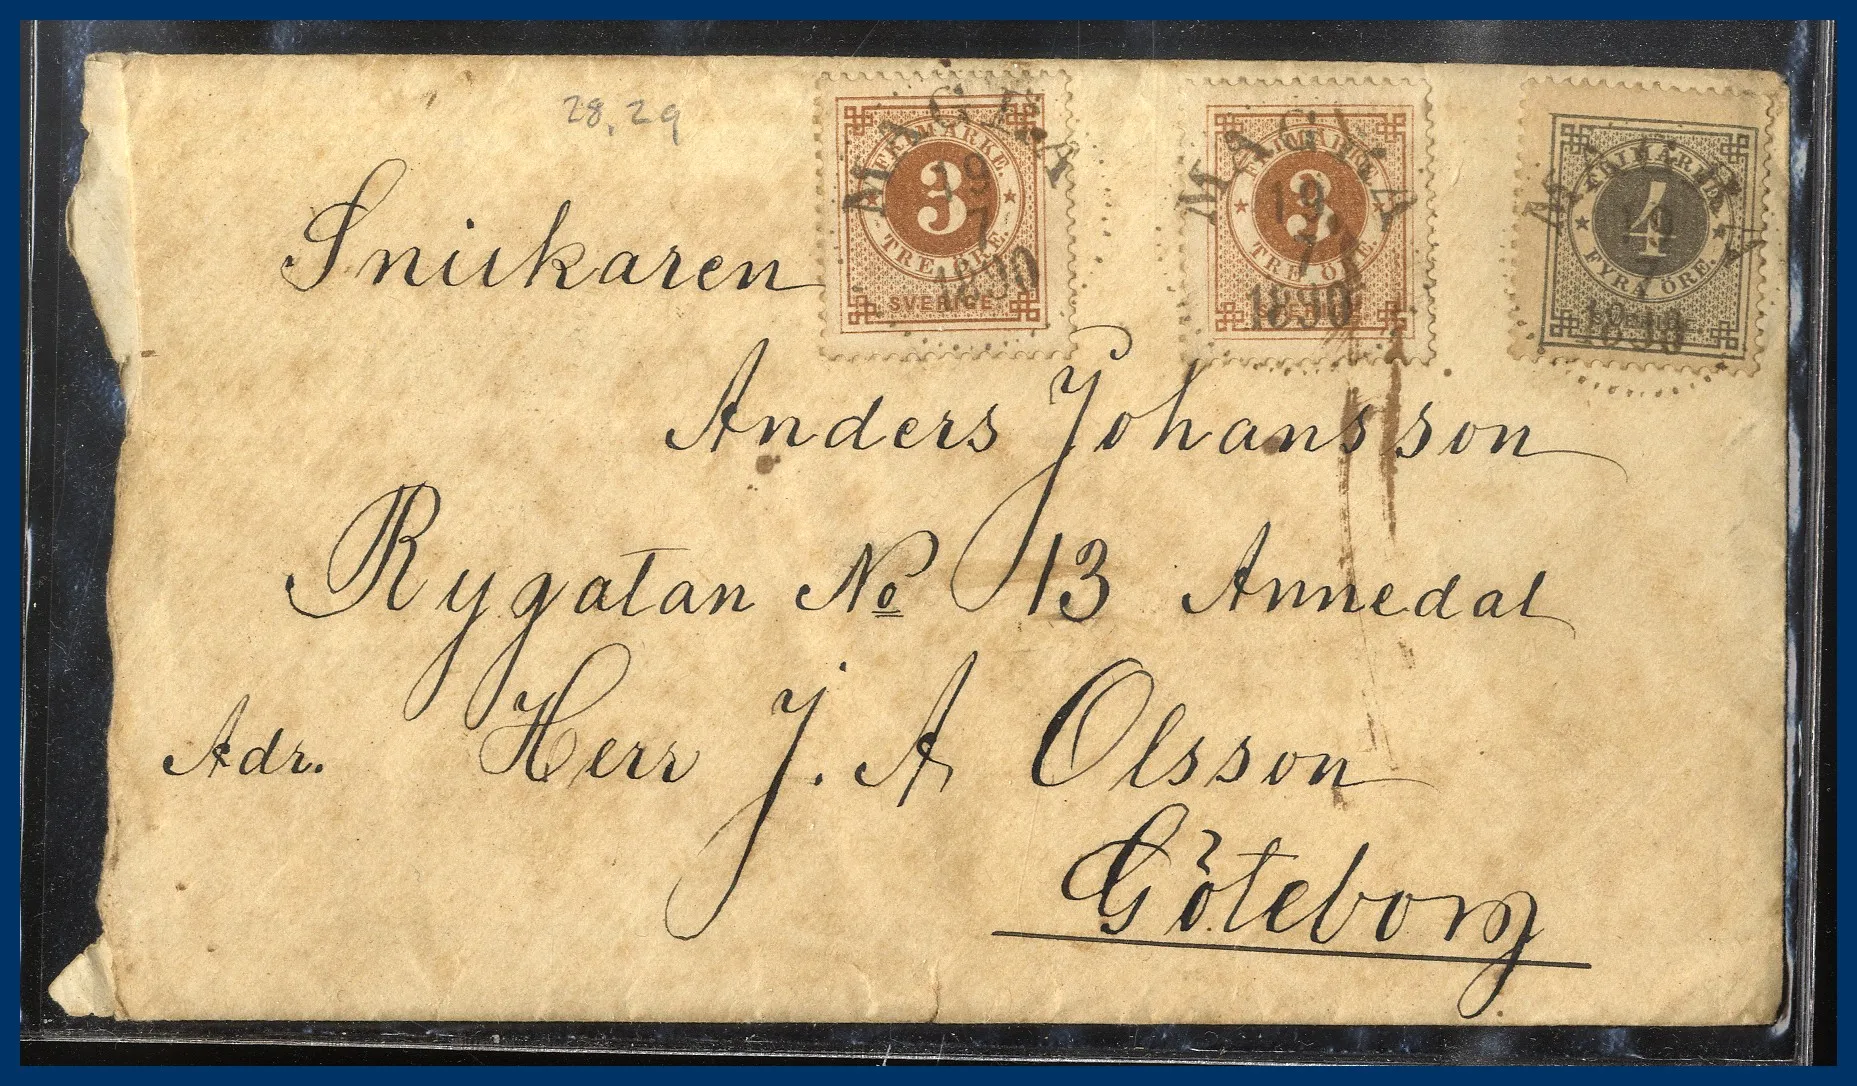 28, 29
MAGLA
FRIMÄRKE.
3
TRE ÖRE.
SVERIGE
19
7
1890
MAGLA
FRIMÄRKE
3
TRE ÖRE.
19
7
1890
FRIMÄRKE
4
FYRA ÖRE.
19
7
1890
Snickaren
Anders Johansson
Rygatan No 13 Annedal
Adr. Herr J. A Olsson
Göteborg